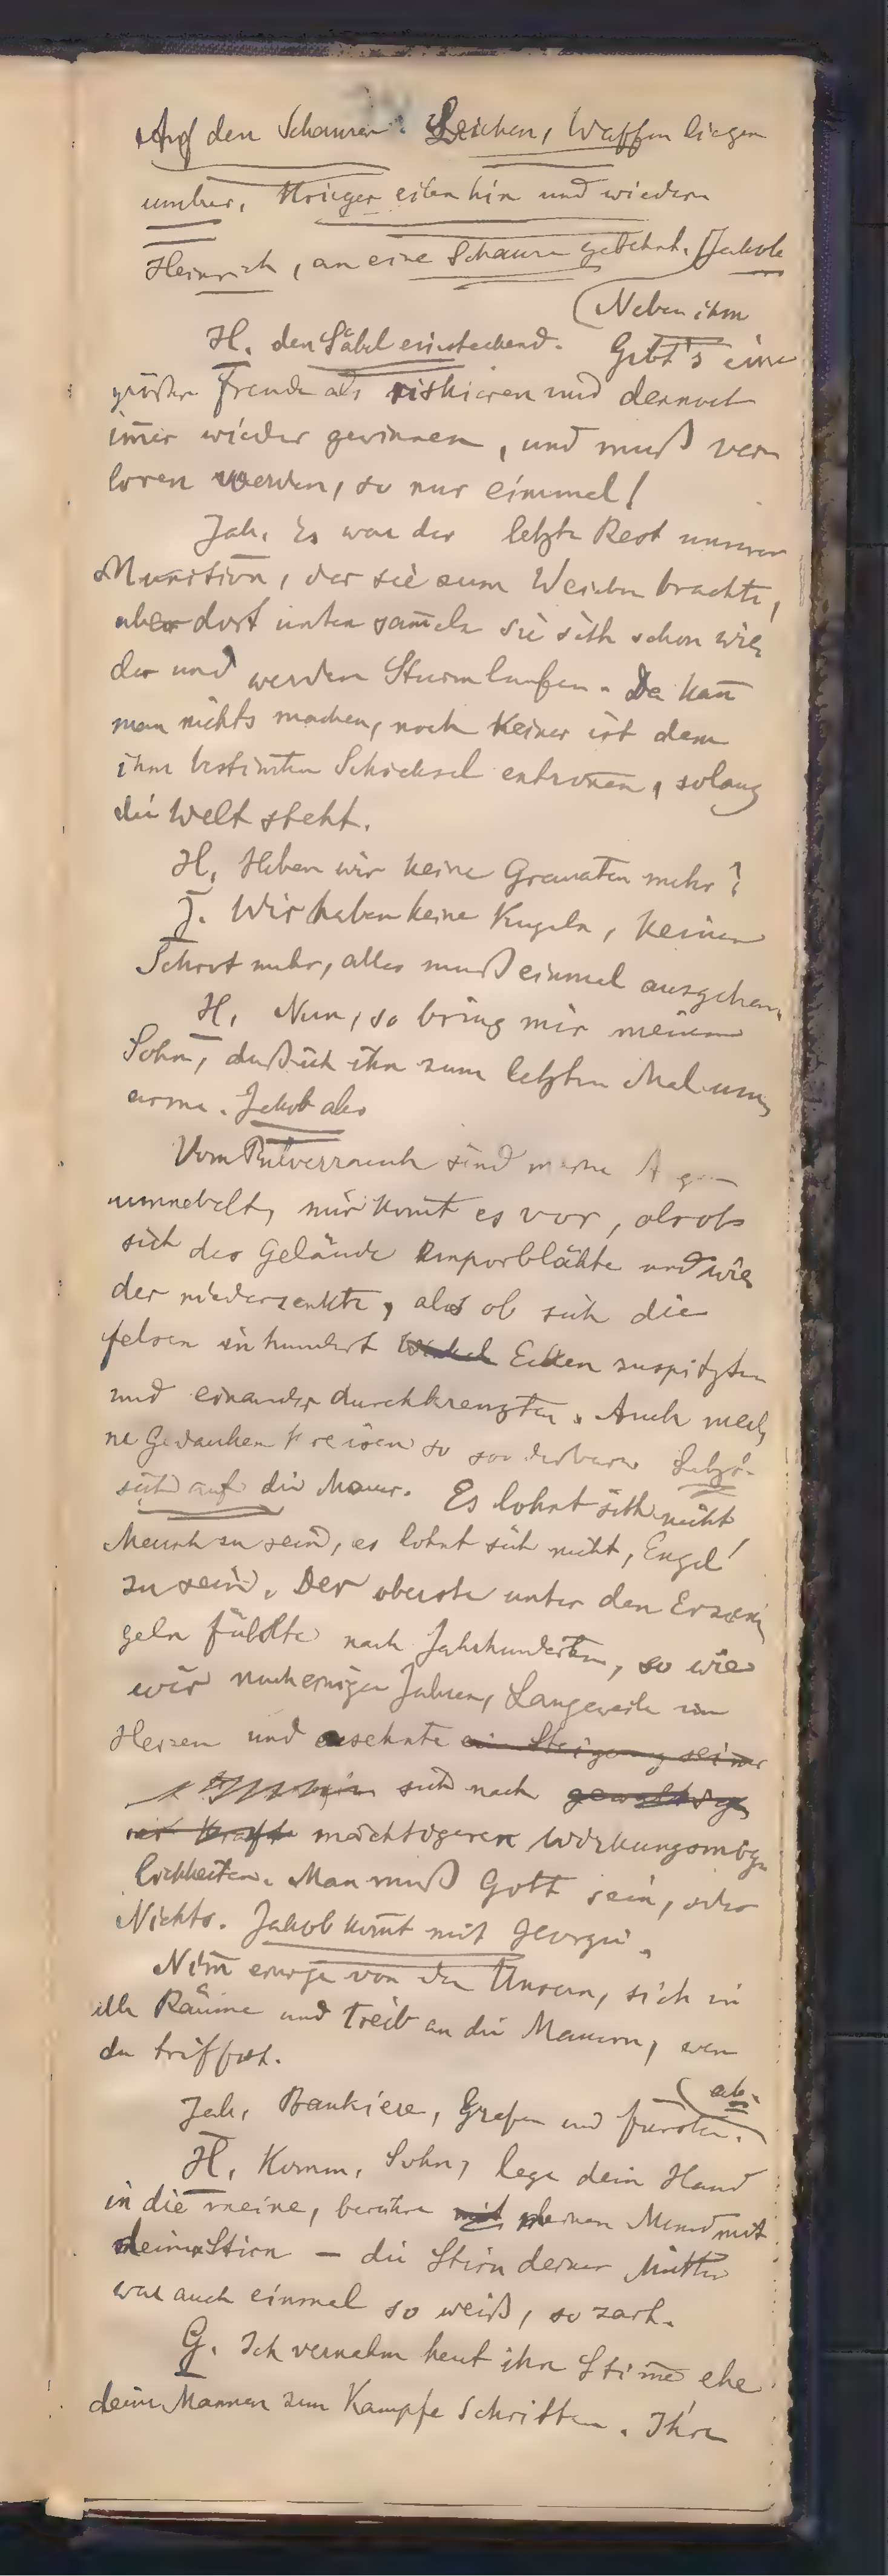 Auf den Schanzen. Leichen, Waffen liegen
umher, Krieger eilen hin und wieder.
Heinrich, an eine Schanze gelehnt. Jakob
(Neben ihm
H. den Säbel einsteckend. Gibt's eine
größre Freude als riskieren und dennoch
im̄er wieder gewinnen, und muß ver
loren werden, so nur einmal!
Jak. Es war der letzte Rest unsrer
Munition, der sie zum Weichen brachte,
aber dort unten sam̄eln sie sich schon wie
der und werden Sturm laufen. Da kan̄
man nichts machen, noch keiner ist dem
ihm bestim̄ten Schicksal entron̄en, solang
die Welt steht.
H. Haben wir keine Granaten mehr?
J. Wir haben keine Kugeln, keinen
Schrot mehr, alles muß einmal ausgehen.
H. Nun, so bring mir meinen
Sohn, daß ich ihn zum letzten Mal um
arme. Jakob ab
Vom Pulverrauch sind meine
umnebelt, mir kom̄t es vor, als ob
sich das Gelände emporblähte und wie
der niedersenkte, als ob sich die
Felsen in hundert Ecken zuspitzten
und einander durchkreuzten. Auch mei
ne Gedanken kreisen so sonderbar. Setzt
sich auf die Mauer. Es lohnt sich nicht
Mensch zu sein, es lohnt sich nicht, Engel
zu sein. Der oberste unter den Erzen
geln fühlte nach Jahrhunderten, so wie
wir nach einigen Jahren, Langeweile im
Herzen und sehnte ein Steigerung seiner
sich nach gewaltiger
Kraft mächtigeren Wirkungsmög
lichkeiten. Man muß Gott sein, oder
Nichts. Jakob kom̄t mit Georgi.
Nim̄ einige von den Unsern, sieh in
alle Räume und treib an die Mauern, wen
du triffst.
(ab.
Jak. Bankiere, Grafen und Fürsten.
H. Komm, Sohn, lege dein Hand
in die meine, berühre mit meinen Mund mit
deiner Stirn – die Stirn deiner Mutter
war auch einmal so weiß, so zart.
G. Ich vernahm heut ihre Stim̄e ehe
deine Mannen zum Kampfe schritten. Ihre